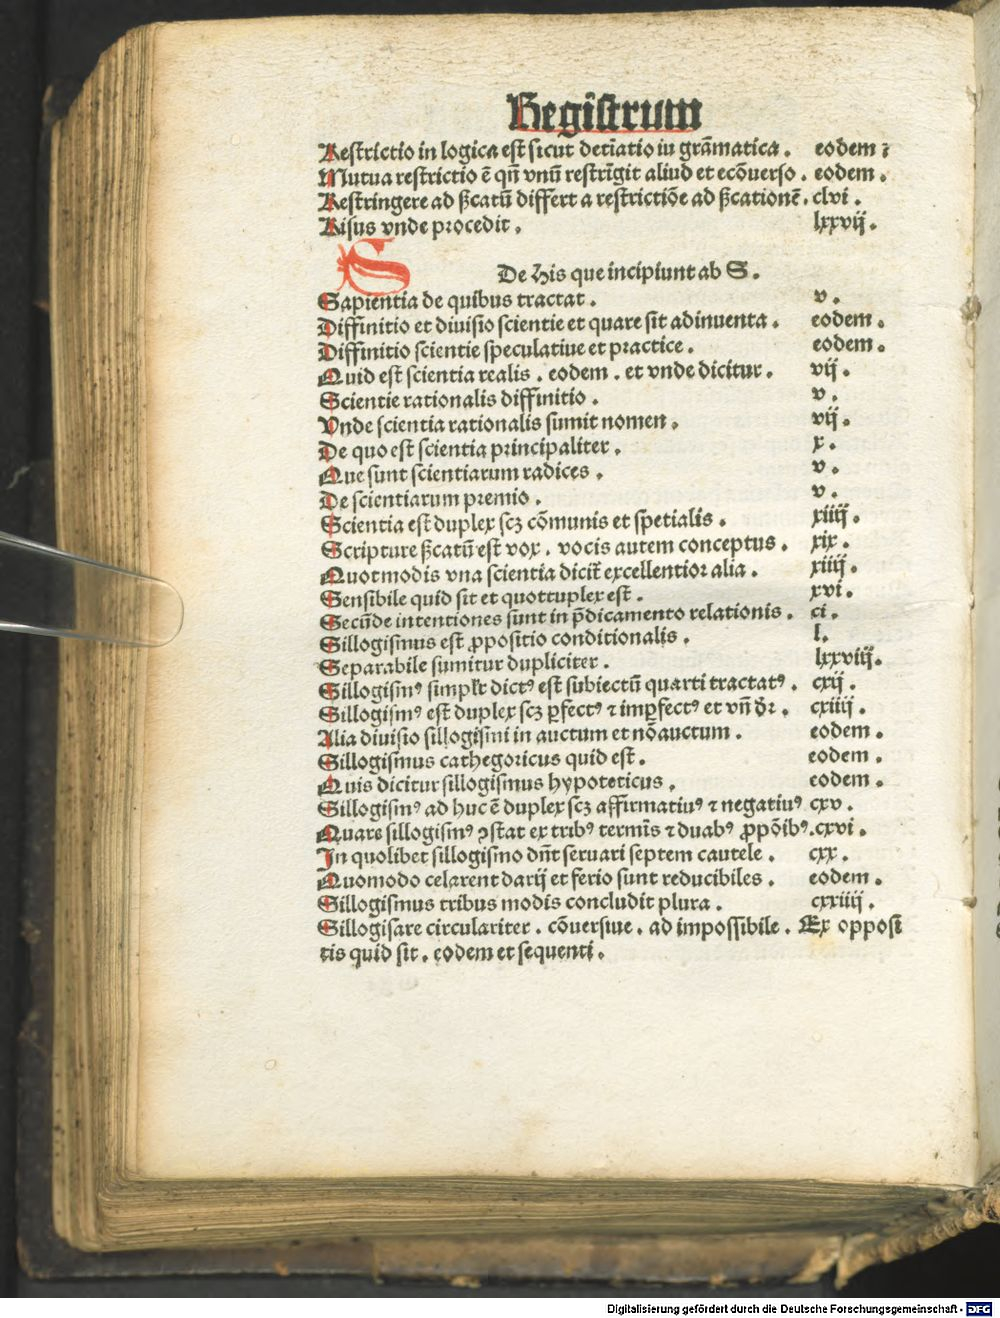 Registrum
Restrictio in logica est sicut detīatio iu grāmatica . eodem :
Mutua restrictio ē qn̄ vnū restrīgit aliud et ecōuerso . eodem .
Restringere ad ẞcatū differt a restrictiōe ad ẞcationē . clvi .
Risus vnde procedit . lxxvij .
S
De His que incipiunt ab S .
Sapientia de quibus tractat . v .
Diffinitio et diuisio scientie et quare sit adinuenta . eodem .
Diffinitio scientie speculatiue et practice . eodem .
Quid est scientia realis . eodem . et vnde dicitur . vij .
Scientie rationalis diffinitio . v .
Vnde scientia rationalis sumit nomen . vij .
De quo est scientia principaliter . x .
Que sunt scientiarum radices . v .
De scientiarum premio . v .
Scientia est duplex scꝫ cōmunis et spetialis . xiiij .
Scripture ẞcatū est vox . vocis autem conceptus . xix .
Quotmodis vna scientia dicit̄ excellentior alia . xiiij .
Sensibile quid sit et quottuplex est . xvi .
Secūde intentiones sunt in p̄dicamento relationis . ci .
Sillogismus est ꝓpositio conditionalis . l .
Separabile sumitur dupliciter . lxxviij .
Sillogismꝰ simplr̄ dictꝰ est subiectū quarti tractatꝰ . cxij .
Sillogismꝰ est duplex scꝫ ꝑfectꝰ ⁊ imꝑfectꝰ et vn̄ dr̄ . cxiiij .
Alia diuisio sillogismi in auctum et nōauctum . eodem .
Sillogismus cathegoricus quid est . eodem .
Quis dicitur sillogismus hypoteticus . eodem .
Sillogismꝰ ad huc ē duplex scꝫ affirmatiuꝰ ⁊ negatiuꝰ cxv .
Quare sillogismꝰ ꝯstat ex tribꝰ termīs ⁊ duabꝰ ꝓpōibꝰ . cxvi .
In quolibet sillogismo dn̄t seruari septem cautele . cxx .
Quomodo celarent darij et ferio sunt reducibiles . eodem .
Sillogismus tribus modis concludit plura . cxxiiij .
Sillogisare circulariter . cōuersiue . ad impossibile . Ex opposi
tis quid sit . eodem et sequenti .
Digitalisierung gefördert durch die Deutsche Forschungsgemeinschaft - DFG